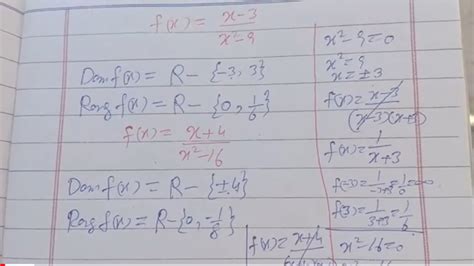 f(x) = x-3 / x²-9
Dom f(x) = R - {-3, 3}
Rang f(x) = R - {0, 1/6}
f(x) = x+4 / x²-16
Dom f(x) = R - {±4}
Rang f(x) = R - {0, -1/8}
x²-9=0
x²=9
x=±3
f(x)= x-3 / (x-3)(x+3)
f(x)= 1 / x+3
f(-3)= 1/-3+3 = 1/0 = ∞
f(3)= 1/3+3 = 1/6
f(x)= x+4
x²-16=0